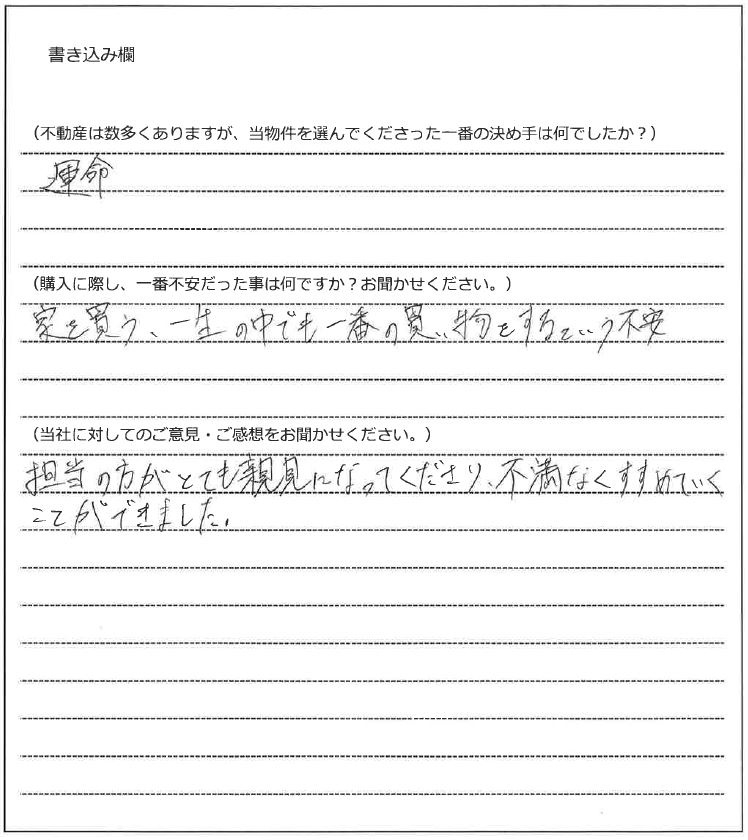 書き込み欄
（不動産は数多くありますが、当物件を選んでくださった一番の決め手は何でしたか？）
運命
（購入に際し、一番不安だった事は何ですか？お聞かせください。）
家を買う、一生の中でも一番の買い物をするという不安
（当社に対してのご意見・ご感想をお聞かせください。）
担当の方がとても親見になってくださり、不満なくすすめていく
ことができました。